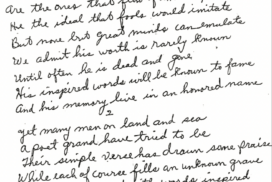 Are the ones that
He the ideal that fools would imitate
But none but great minds can emulate
We admit his worth is rarely known
Until often he is dead and gone
His inspired words will be known to fame
And his memory live in an honored name
2
yet many men on land and sea
A poet grand have tried to be
Their simple verse has drawn some praise
While each of course fills an unknown grave
words inspired